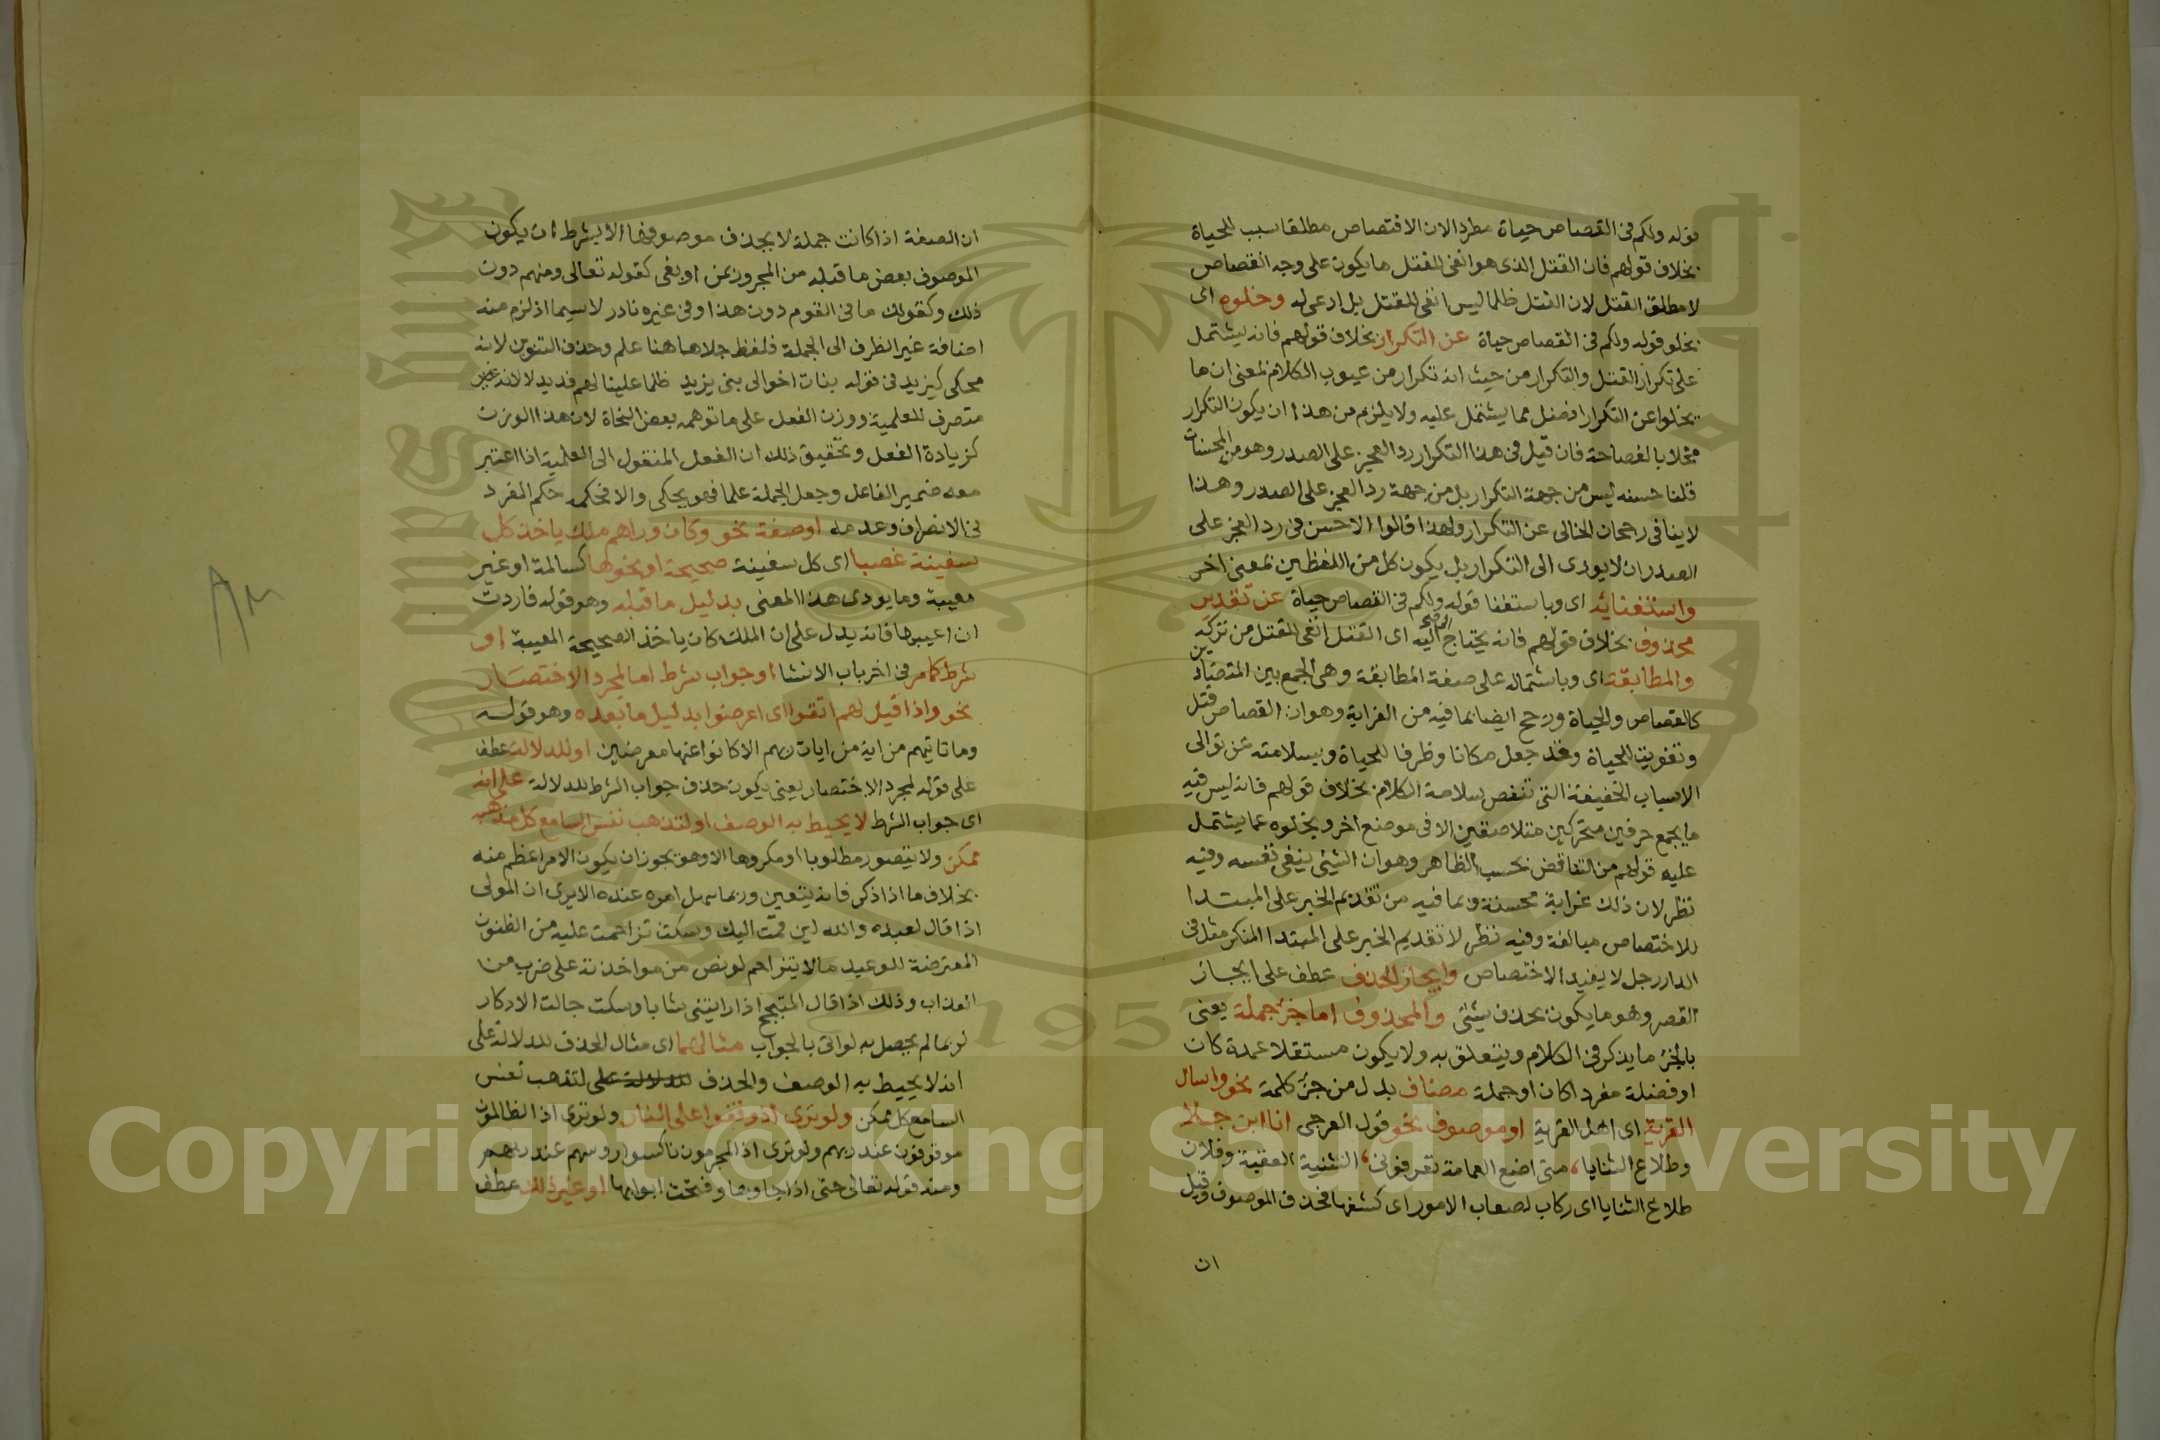 قوله ولكم فى القصاص حياة مطرد الان الاقتصاص مطلقا سبب للحياة
بخلاف قولهم فان القتل الذى هو انفى للقتل ما يكون على وجه القصاص
لا مطلق القتل لان القتل ظلما ليس انفى للقتل بل ادعى له وخلوه اى
بخلو قوله ولكم فى القصاص حياة عن التكرار بخلاف قولهم فانه يشتمل
على تكرار القتل والتكرار من حيث انه تكرار من عيوب الكلام بمعنى ان ما
يخلوا عن التكرار افضل مما يشتمل عليه ولا يلزم من هذا ان يكون التكرار
مخلا بالفصاحة فان قيل فى هذا التكرار رد العجز على الصدر وهو من المحسنات
قلنا حسنه ليس من جهة التكرار بل من جهة رد العجز على الصدر وهذا
لا ينافى رجحان الخالى عن التكرار ولهذا قالوا الاحسن فى رد العجز على
الصدر ان لا يودى الى التكرار بل يكون كل من اللفظين بمعنى اخر
واستغنائه اى وباستغنا قوله ولكم فى القصاص حياة عن تقدير
محذوف بخلاف قولهم فانه يحتاج اليه اى القتل انفى للقتل من تركه
والمطابقة اى وباشتماله على صفة المطابقة وهى الجمع بين المتضادين
كالقصاص والحياة ورجح ايضا بما فيه من الغرابة وهو ان القصاص قتل
وتفويت للحياة وقد جعل مكانا وظرفا للحياة وبسلامته عن توالى
الاسباب الخفيفة التى تنقص سلاسة الكلام بخلاف قولهم فانه ليس فيه
ما يجمع حرفين متحركين متلاصقين الا فى موضع اخر وبخلوه عما يشتمل
عليه قولهم من التناقض بحسب الظاهر وهو ان الشيئ ينفى نفسه وفيه
نظر لان ذلك غرابة محسنة وبما فيه من تقديم الخبر على المبتدا
للاختصاص مبالغة وفيه نظر لا تقديم الخبر على المبتدا المنكر مثل فى
الدار رجل لا يفيد الاختصاص وايجاز الحذف عطف على ايجاز
القصر وهو ما يكون بحذف شيئ والمحذوف اما جزء جملة يعنى
بالجزء ما يذكر فى الكلام ويتعلق به ولا يكون مستقلا عمدة كان
او فضلة مفردا كان او جملة مضاف بدل من جزء كلمة نحو واسال
القرية اى اهل القرية او موصوف نحو قول العرجى انا ابن جلا
وطلاع الثنايا، متى اضع العمامة تعرفونى، الثنية العقبة وفلان
طلاع الثنايا اى ركاب لصعاب الامور اى كشفها فحذف الموصوف وقيل
ان
ان الصفة اذا كانت جملة لا يحذف موصوفها الا بشرط ان يكون
الموصوف بعض ما قبله من المجرور بمن او بفى كقوله تعالى ومنهم دون
ذلك وكقولك ما فى القوم دون هذا وفى غيره نادر لا سيما اذ لزم منه
اضافة غير الظرف الى الجملة فلفظ جلا هاهنا علم وحذف التنوين لانه
محكى كيزيد فى قوله بنات اخوالى بنى يزيد ظلما علينا لهم فديد لا لانه غير
متصرف للعلمية ووزن الفعل على ما توهمه بعض النحاة لان هذا الوزن
كزيادة الفعل وتحقيق ذلك ان الفعل المنقول الى العلمية اذا اعتبر
معه ضمير الفاعل وجعل الجملة علما فهو يحكى والا فحكمه حكم المفرد
فى الانصراف وعدمه او صفة نحو وكان وراهم ملك ياخذ كل
سفينة غصبا اى كل سفينة صحيحة او نحوها كسالمة او غير
معيبة وما يودى هذا المعنى بدليل ما قبله وهو قوله فاردت
ان اعيبها فانه يدل على ان الملك كان ياخذ الصحيحة المعيبة او
شرط كما مر فى اخر باب الانشا او جواب شرط اما لمجرد الاختصار
نحو واذا قيل لهم اتقوا اى اعرضوا بدليل ما بعده وهو قوله
وما تاتيهم من اية من ايات ربهم الا كانوا عنها معرضين او للدلالة عطف
على قوله لمجرد الاختصار يعنى يكون حذف جواب الشرط للدلالة على انه
اى جواب الشرط لا يحيط به الوصف او لتذهب نفس السامع كل مذهب
ممكن ولا يتصور مطلوبا او مكروها الا وهو يجوز ان يكون الامر اعظم منه
بخلاف ما اذا ذكر فانه يتعين وربما سهل امره عنده الا يرى ان المولى
اذا قال لعبده والله لين قمت اليك وسكت تزاحمت عليه من الظنون
المعترضة للوعيد ما لا يتزاحم لو نص من مواخذته على ضرب من
العذاب وذلك اذا قال المتبجح اذا رايتنى شابا وسكت جالت الافكار
لو بما لم يحصل به لو اتى بالجواب مثالهما اى مثال الحذف للدلالة على
انه لا يحيط به الوصف والحذف للدلالة على لتذهب نفس
السامع كل ممكن ولو ترى اذ وقفوا على النار ولو ترى اذ الظالمون
موقوفون عند ربهم ولو ترى اذ المجرمون ناكسوا روسهم عند ربهم
ومنه قوله تعالى حتى اذا جاوها وفتحت ابوابها او غير ذلك عطف
٨٣
Copyright © King Saud University
1957